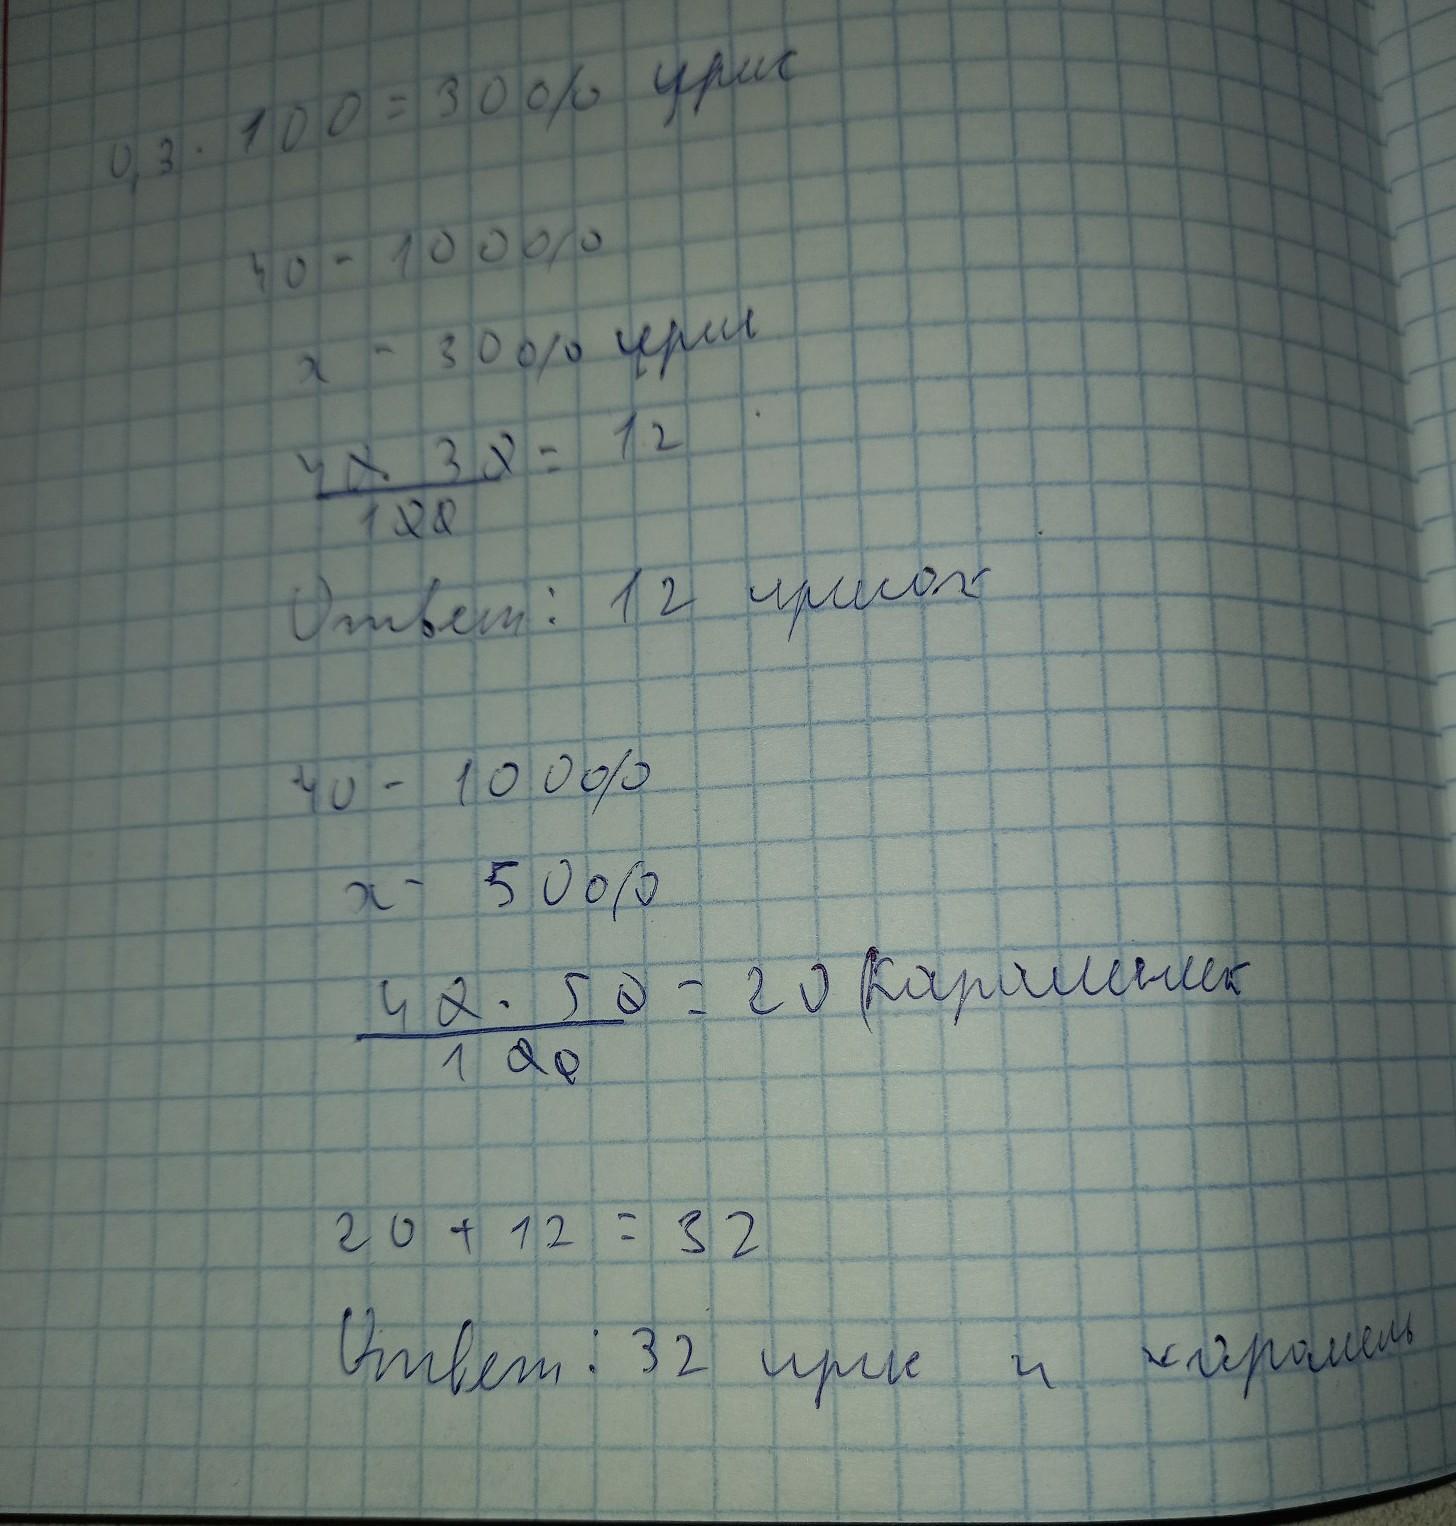 0,3 · 100 = 30% ирис
40 - 100%
x - 30% ирис
40 · 30 = 12
100
Ответ: 12 ирисок
40 - 100%
x - 50%
40 · 50 = 20 (карамелек
100
20 + 12 = 32
Ответ: 32 ирис и карамель